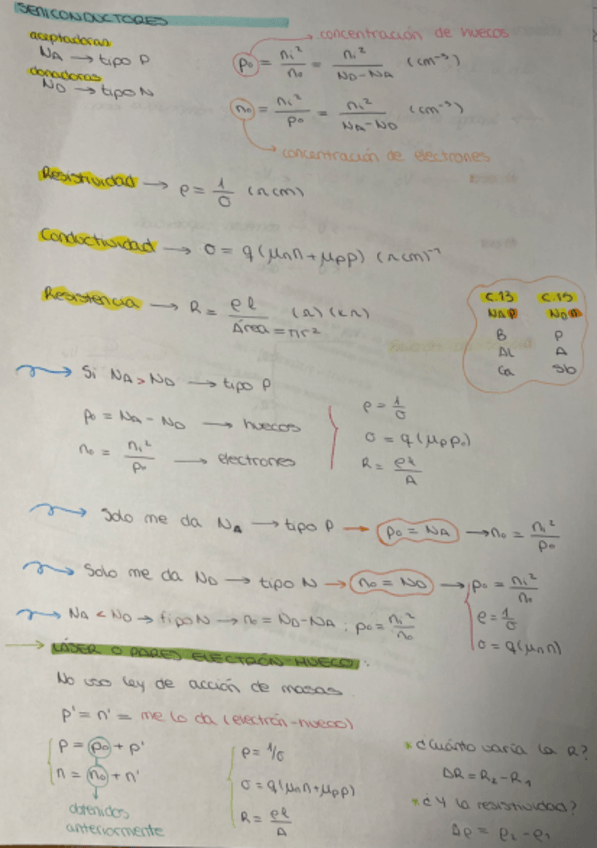 SEMICONDUCTORES
aceptadoras
NA → tipo P
donadoras
ND → tipo N
concentración de huecos
p₀ = nᵢ²/n₀ = nᵢ²/(ND-NA) (cm⁻³)
n₀ = nᵢ²/p₀ = nᵢ²/(NA-ND) (cm⁻³)
concentración de electrones
Resistividad → ρ = 1/σ (Ωcm)
Conductividad → σ = q(μₙn + μₚp) (Ωcm)⁻¹
Resistencia → R = ρl/Área = πr² (Ω) (kΩ)
C.13 C.15
NAP NDn
B P
AL A
Ga Sb
Si NA > ND → tipo P
p₀ = NA - ND → huecos
n₀ = nᵢ²/p₀ → electrones
ρ = 1/σ
σ = q(μₚp₀)
R = ρl/A
Solo me da NA → tipo P → p₀ = NA → n₀ = nᵢ²/p₀
Solo me da ND → tipo N → n₀ = ND → p₀ = nᵢ²/n₀
ρ = 1/σ
σ = q(μₙn)
NA < ND → tipo N → n₀ = ND-NA ; p₀ = nᵢ²/n₀
→ LÁSER O PARES ELECTRÓN-HUECO:
No uso ley de acción de masas
p' = n' = me lo da (electrón-hueco)
p = p₀ + p'
n = n₀ + n'
obtenidos
anteriormente
ρ = 1/σ
σ = q(μₙn + μₚp)
R = ρl/A
* ¿Cuánto varía la R?
ΔR = R₂ - R₁
* ¿Y la resistividad?
Δρ = ρ₂ - ρ₁